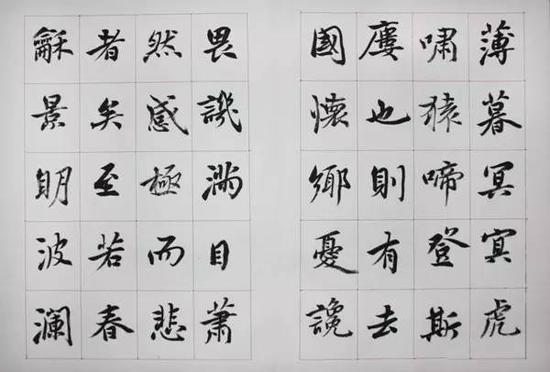 薄暮冥冥虎
嘯猿啼登斯
廔也則有去
國懷鄉憂讒
畏譏滿目蕭
然感極而悲
者矣至若春
龢景明波瀾